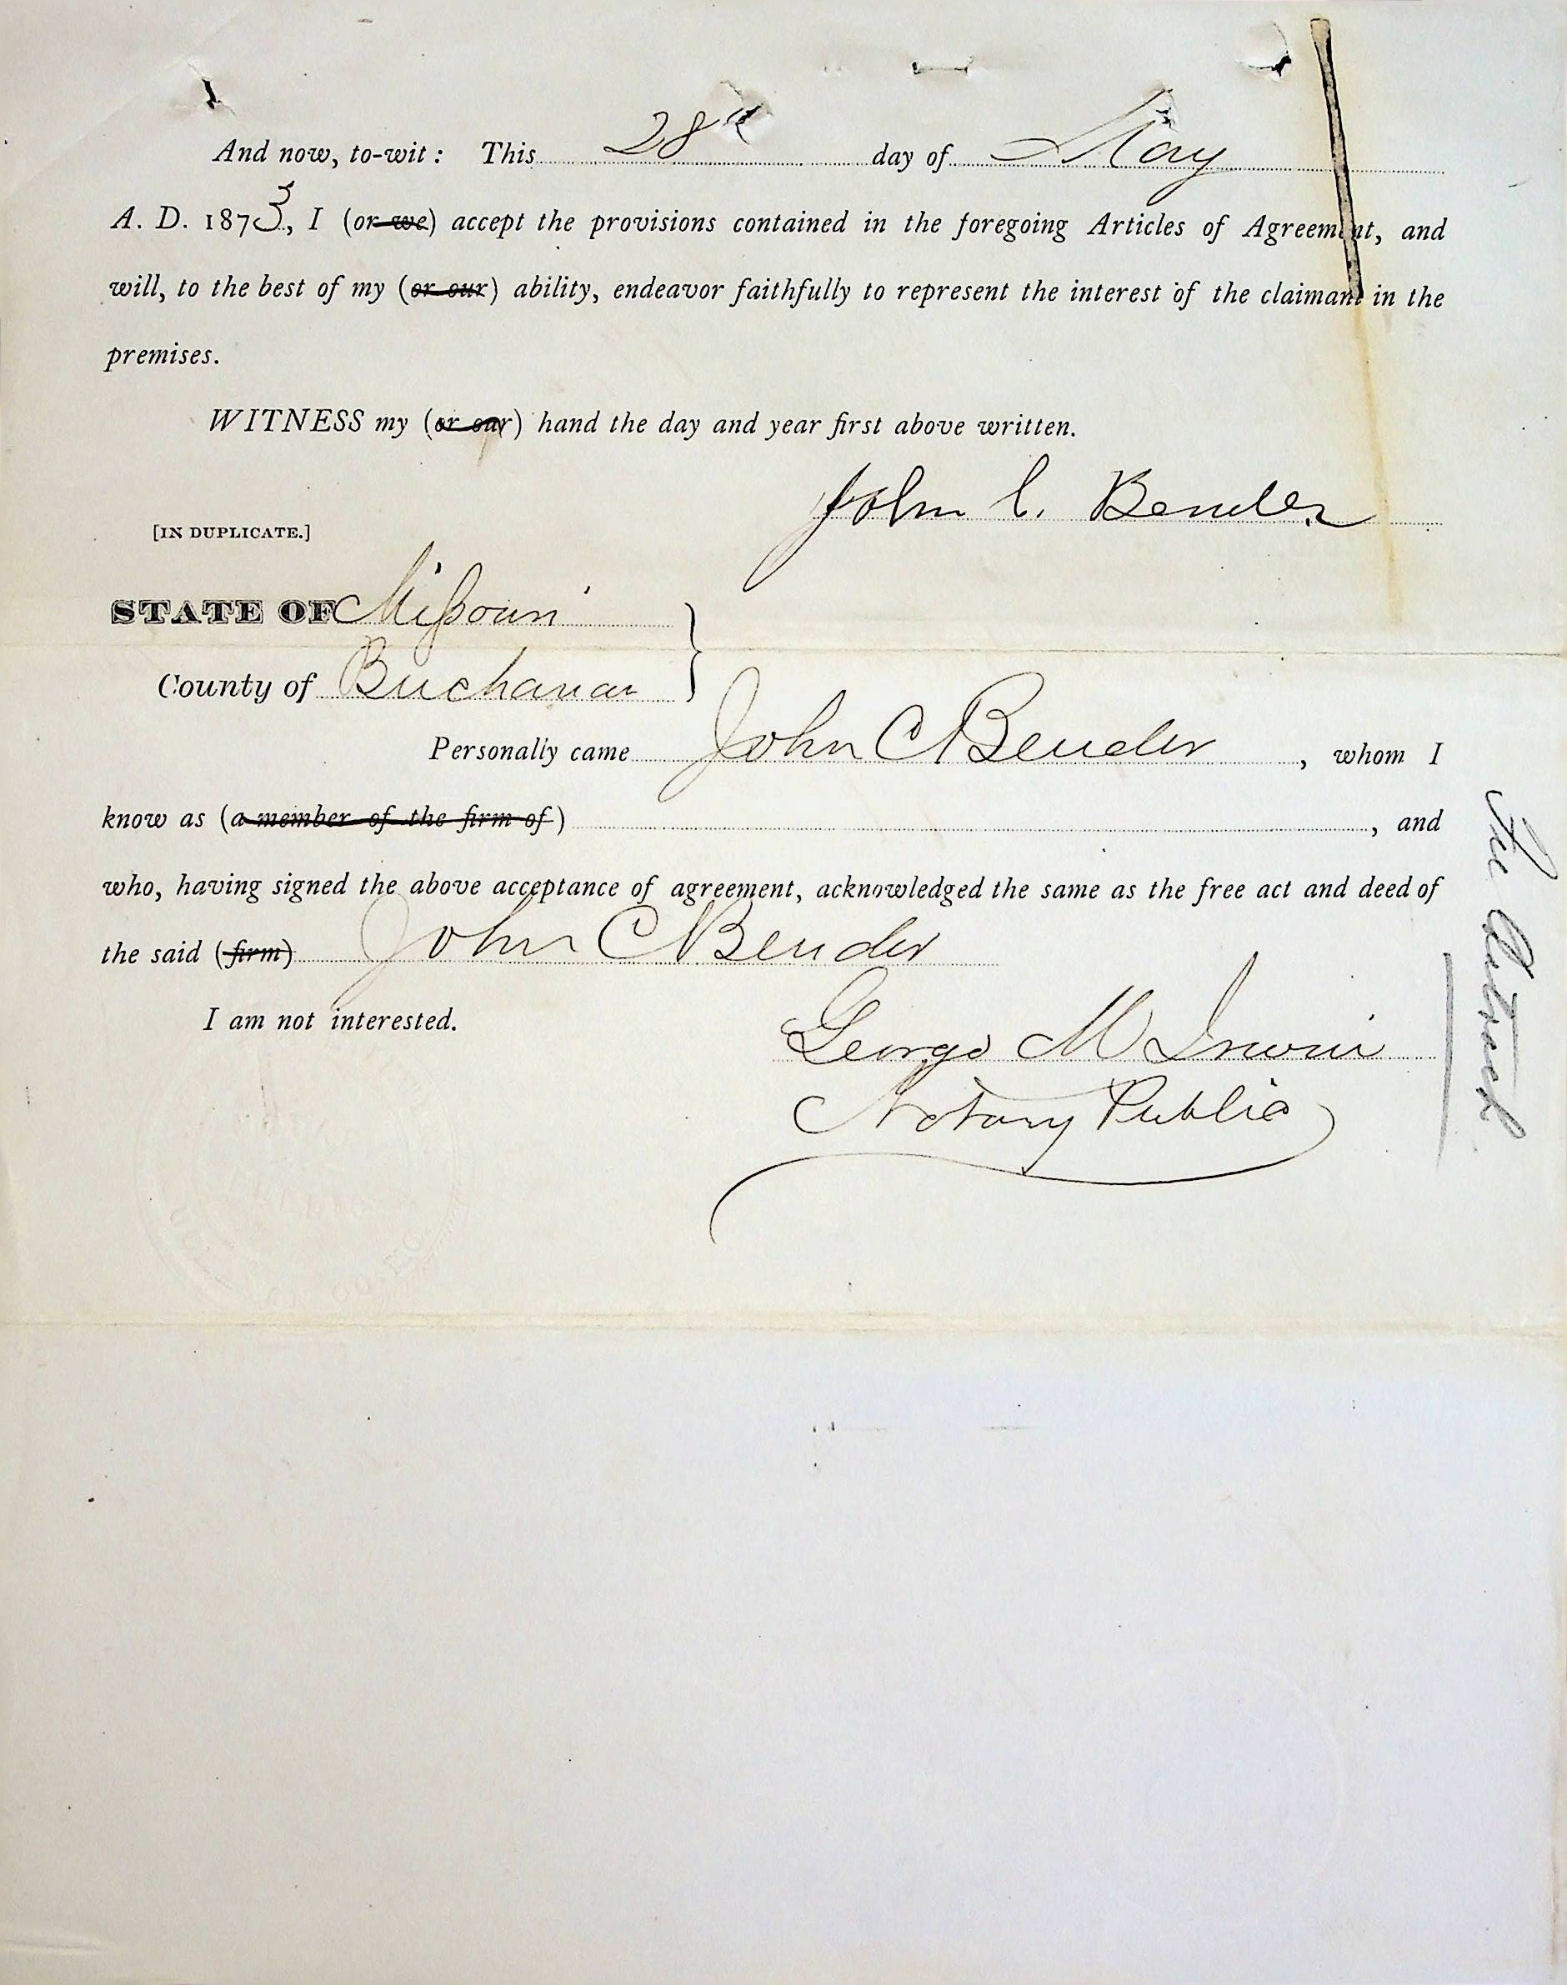 And now, to-wit: This 28th day of May
A. D. 1873, I (or we) accept the provisions contained in the foregoing Articles of Agreement, and
will, to the best of my (or our) ability, endeavor faithfully to represent the interest of the claimant in the
premises.
WITNESS my (or our) hand the day and year first above written.
John C. Bender
[IN DUPLICATE.]
STATE OF Missouri
County of Buchanan
Personally came John C Bender, whom I
know as (a member of the firm of) , and
who, having signed the above acceptance of agreement, acknowledged the same as the free act and deed of
the said (firm) John C Bender
I am not interested.
George M Irwin
Notary Public